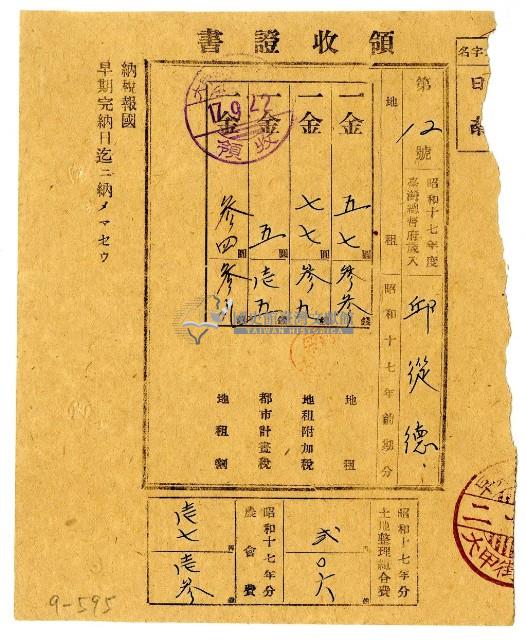 領收證書
名字
日南
第12號
昭和十七年度
臺灣總督府歲入
地租
昭和十七年前期分
邱從德
一金 五七圓參參錢 地租
一金 七七圓參九錢 地租附加稅
一金 五圓壹五錢 都市計畫稅
一金 參四圓參 地租割
17.9.22
領收
納稅報國
早期完納日迄ニ納メマセウ
昭和十七年分
土地整理組合費
貳〇六
昭和十七年分
農會費
壹七壹參
大甲街
TAIWAN HISTORICA
9-595